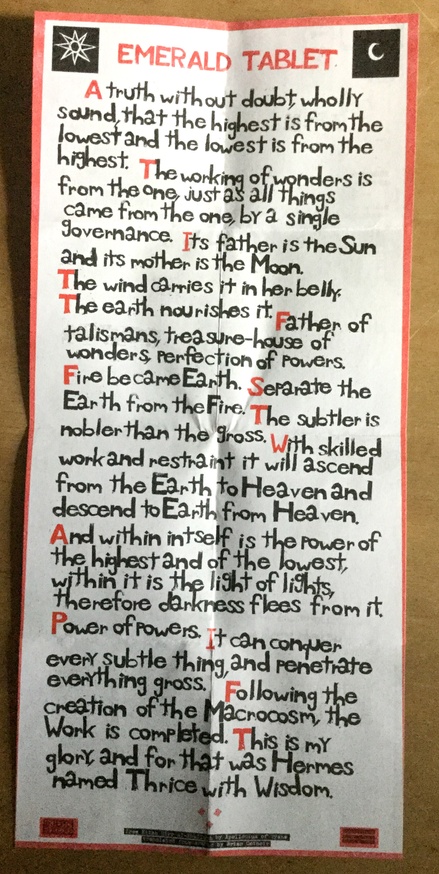 EMERALD TABLET
A truth without doubt, wholly
sound, that the highest is from the
lowest and the lowest is from the
highest. The working of wonders is
from the one, just as all things
came from the one, by a single
governance. Its father is the Sun
and its mother is the Moon.
The wind carries it in her belly.
The earth nourishes it. Father of
talismans, treasure-house of
wonders, perfection of powers.
Fire became Earth. Separate the
Earth from the Fire. The subtler is
nobler than the gross. With skilled
work and restraint it will ascend
from the Earth to Heaven and
descend to Earth from Heaven.
And within intself is the power of
the highest and of the lowest,
within it is the light of lights,
therefore darkness flees from it.
Power of powers. It can conquer
every subtle thing, and penetrate
everything gross. Following the
creation of the Macrocosm, the
Work is completed. This is my
glory, and for that was Hermes
named Thrice with Wisdom.